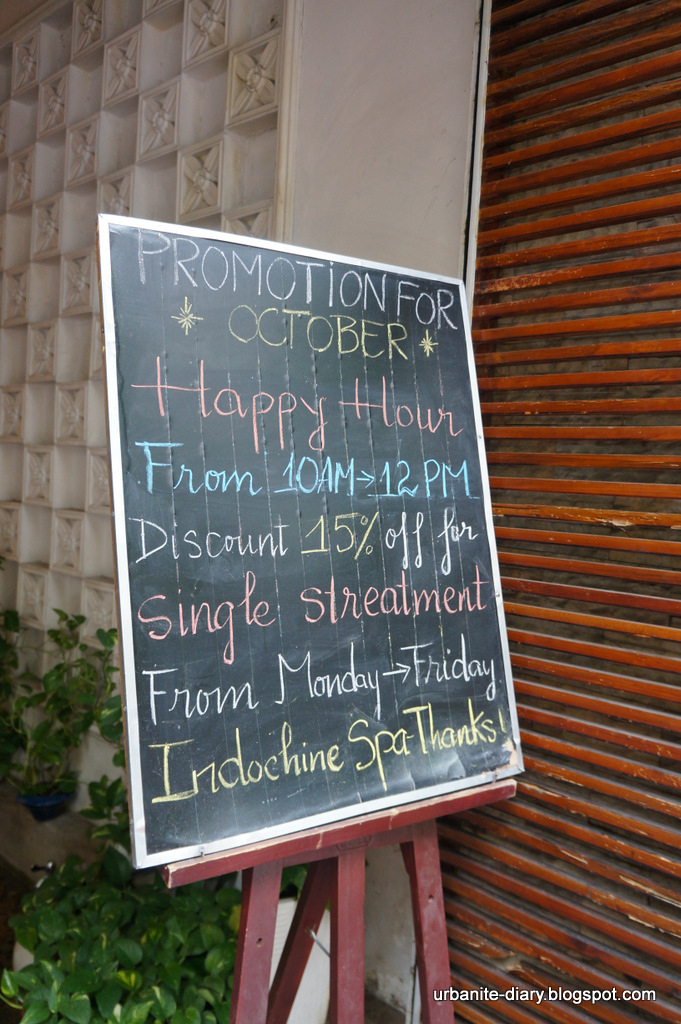 PROMOTION FOR
OCTOBER
Happy Hour
From 10AM→12PM
Discount 15% off for
single streatment
From Monday→Friday
Indochine Spa-Thanks!
urbanite-diary.blogspot.com